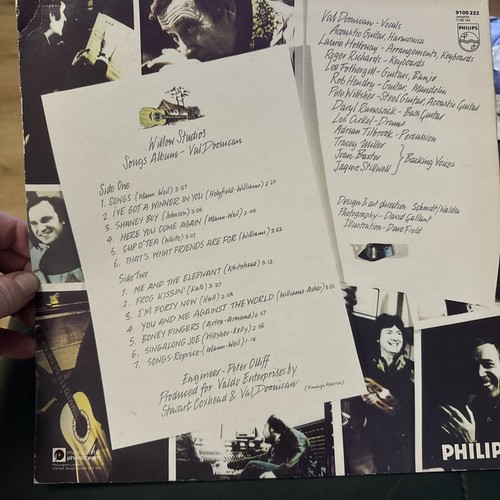 Willow Studios
Songs Album - Val Doonican
Side One
1. SONGS (Mann-Weil) 3:57
2. I'VE GOT A WINNER IN YOU (Holyfield-Williams) 2:29
3. SHANEY BOY (Johnson) 3:06
4. HERE YOU COME AGAIN (Mann-Weil) 2:49
5. CUP O'TEA (Waite) 3:07
6. THAT'S WHAT FRIENDS ARE FOR (Williams) 3:52
Side Two
1. ME AND THE ELEPHANT (Whitehead) 3:12
2. FROG KISSIN' (Kalb) 3:27
3. I'M FORTY NOW (Hall) 2:58
4. YOU AND ME AGAINST THE WORLD (Williams-Asher) 3:52
5. BONEY FINGERS (Axton-Armand) 2:57
6. SINGALONG JOE (Willsher-Kelly) 2:56
7. SONGS-Reprise-(Mann-Weil) 1:18
Engineer - Peter Olliff
Produced for Valdo Enterprises by
Stewart Coxhead & Val Doonican
(Timings Approx)
9109 222
PHILIPS
Val Doonican - Vocals
Acoustic Guitar, Harmonica
Laurie Holloway - Arrangements, Keyboards
Roger Richards - Keyboards
Lee Fothergill - Guitars, Banjo
Rob Hendry - Guitar, Mandolin
Pete Willsher - Steel Guitar, Acoustic Guitar
Daryl Runswick - Bass Guitar
Les Cirkel - Drums
Adrian Tilbrook - Percussion
Tracey Miller
Joan Baxter
Jaquie Stillwell
Backing Voices
Design & art direction Schmidt/Walden
Photography - David Gallant
Illustration - Dave Field
PHILIPS